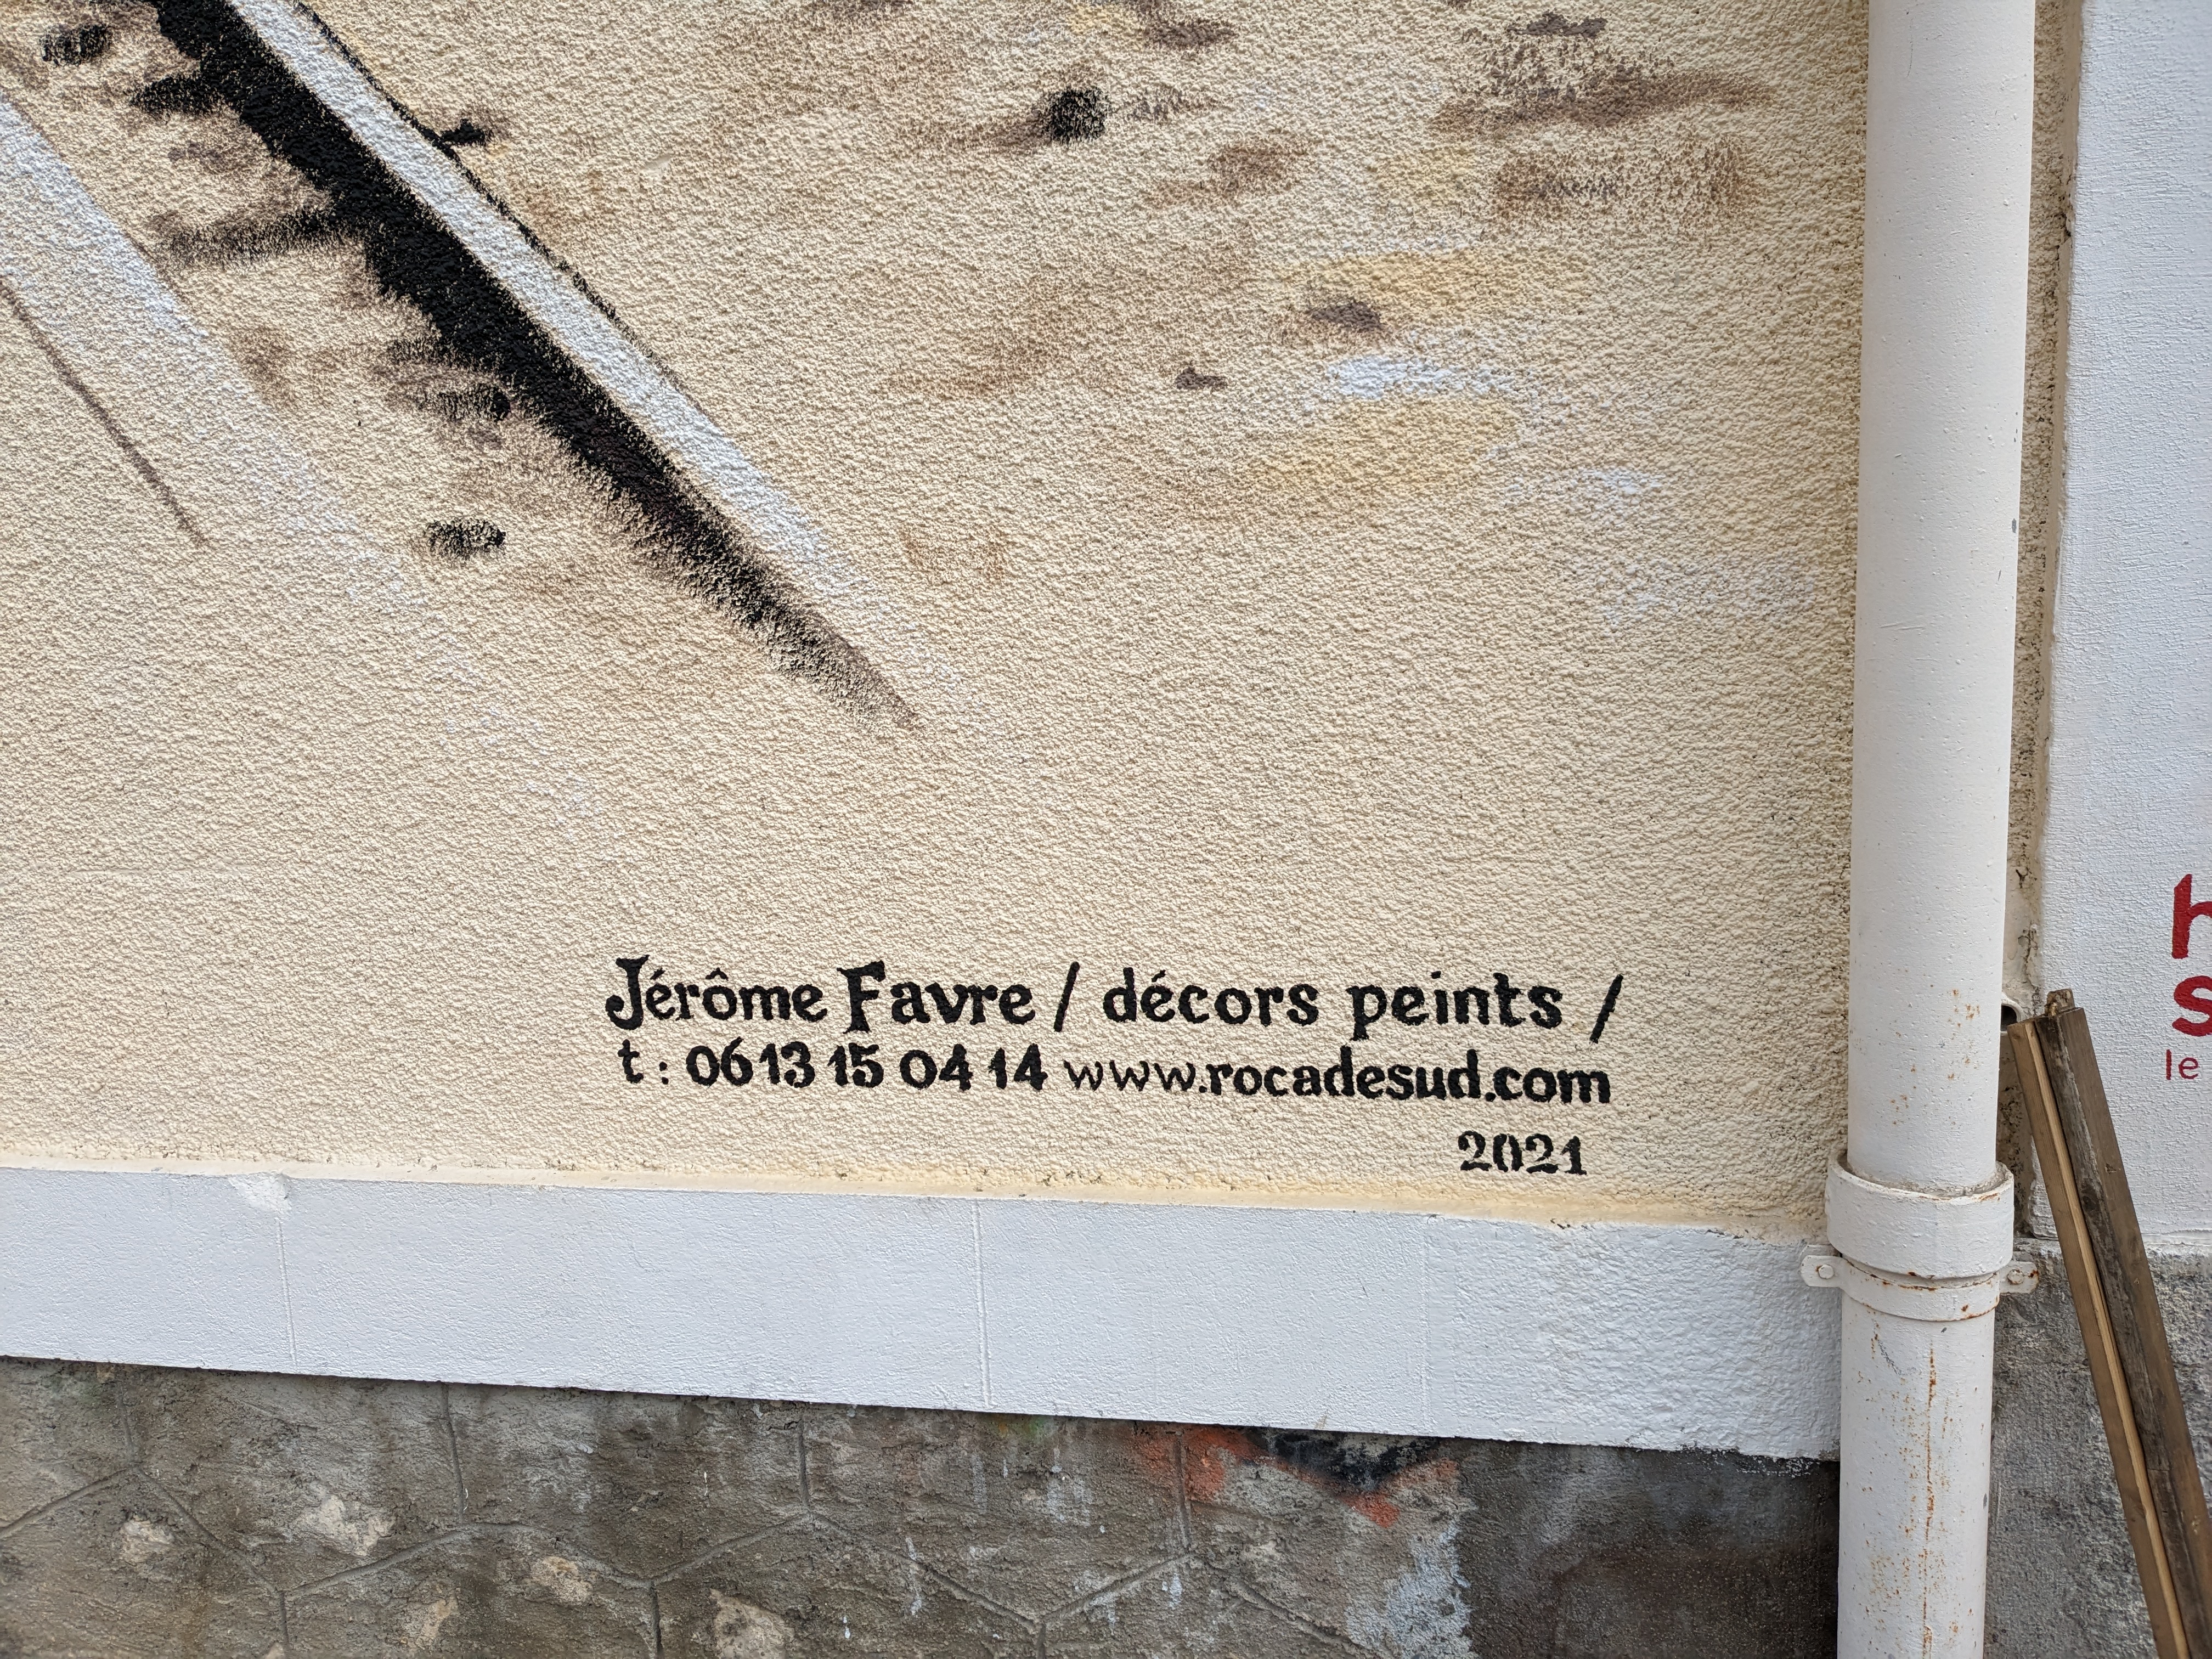 Jérôme Favre / décors peints /
t : 06 13 15 04 14 www.rocadesud.com
2021
le